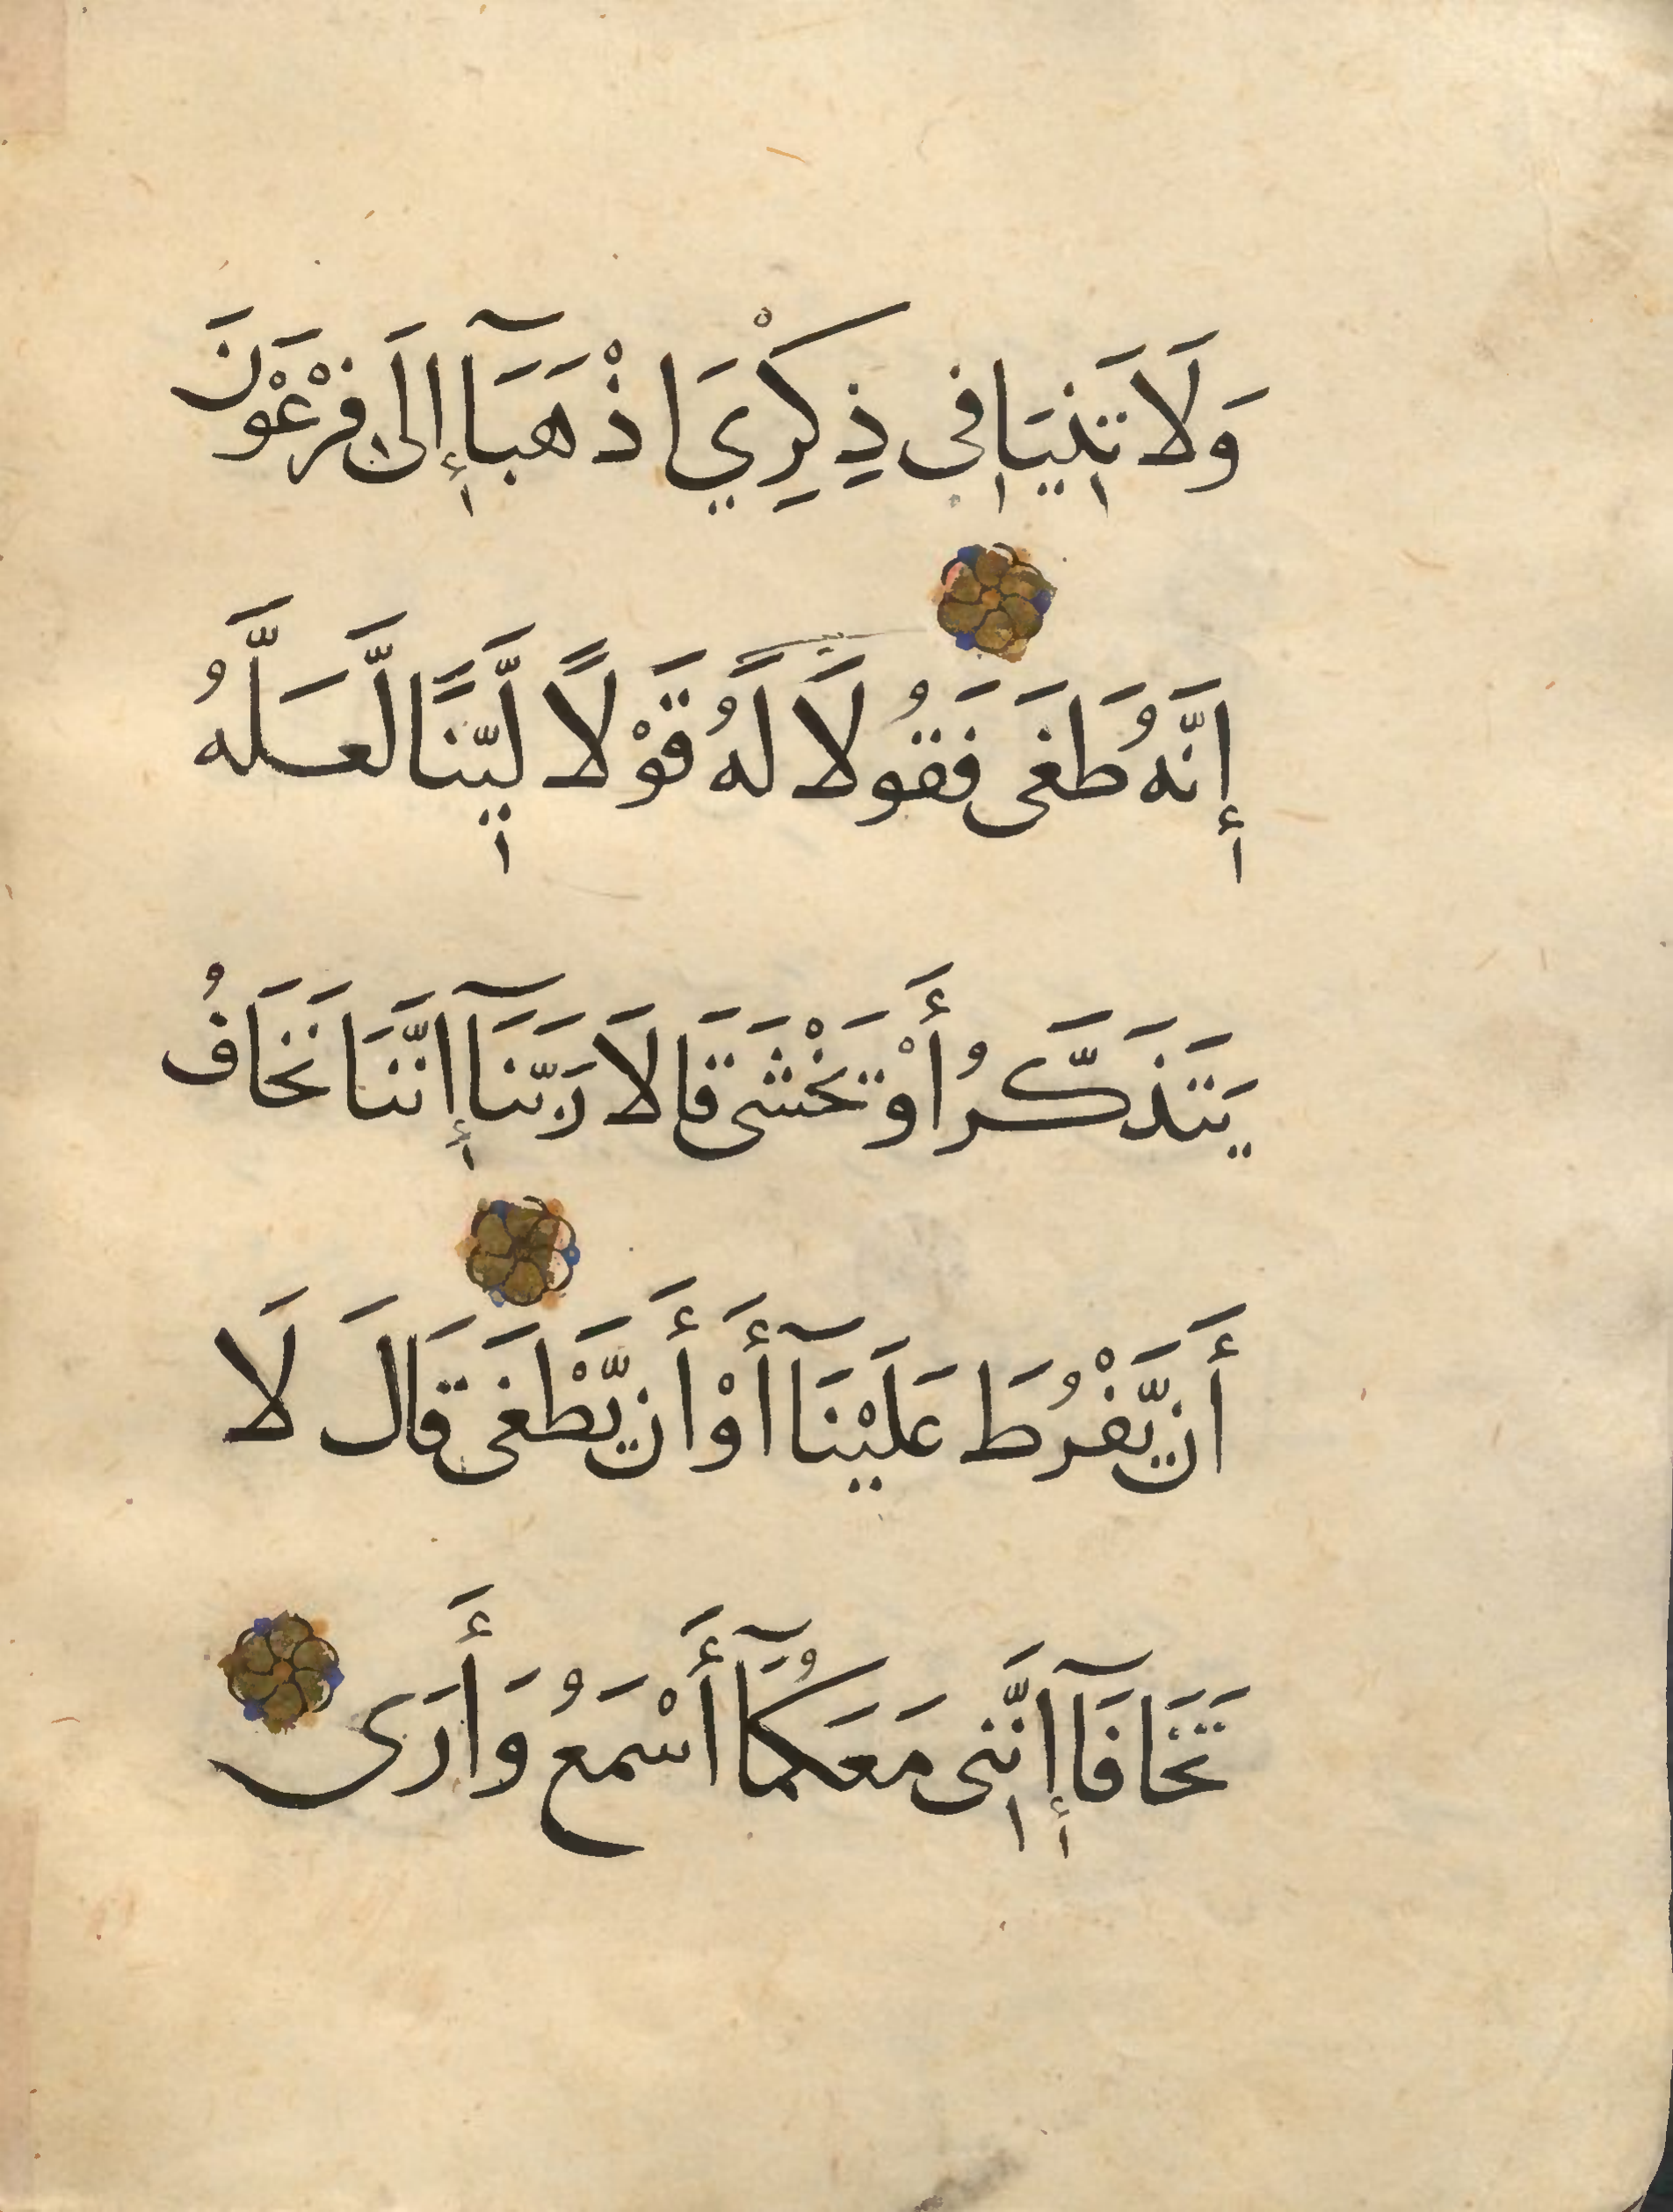 وَلَا تَنِيَا فِى ذِكْرِيَ اذْهَبَآ إِلَى فِرْعَوْنَ
إِنَّهُ طَغَى فَقُولَا لَهُ قَوْلًا لَّيِّنًا لَّعَلَّهُ
يَتَذَكَّرُ أَوْ يَخْشَى قَالَا رَبَّنَآ إِنَّنَا نَخَافُ
أَن يَّفْرُطَ عَلَيْنَآ أَوْ أَن يَّطْغَى قَالَ لَا
تَخَافَآ إِنَّنِى مَعَكُمَآ أَسْمَعُ وَأَرَى